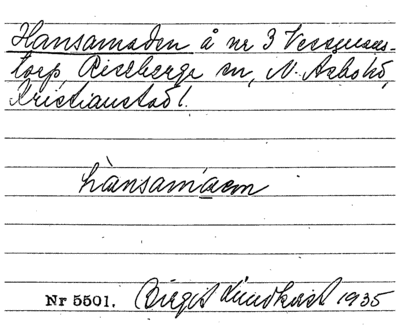 Hansamaden å nr 3 Vessmans-
torp Riseberga sn, N. Åsbo hd,
Kristianstad l.
hànsamàen
Nr 5501. Birgit Lundkvist 1935